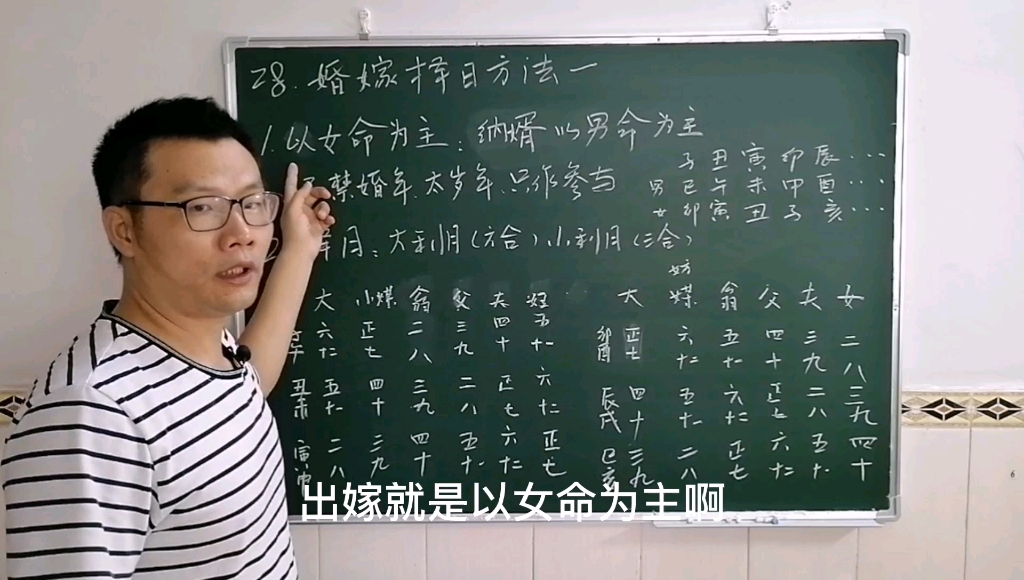 28.婚嫁择日方法一
1.以女命为主:纳婿以男命为主
禁婚年.太岁年.只作参与
子丑寅卯辰···
男巳午未甲酉···
女卯寅丑子亥···
年月:大利月(六合)、小利月(三合)
大 小媒 翁 父 夫 妇
六十二 正七 二八 三九 四十 五十一
丑未 五十一 四十 三九 二八 正七 六十二
寅 二八 三九 四十 五十一 六十二 正七
大 妨媒 翁 父 夫 女
卯酉 正七 六十二 五十一 四十 三九 二八
辰戌 四十 五十一 六十二 正七 二八 三九
巳亥 三九 二八 正七 六十二 五十一 四十
出嫁就是以女命为主啊